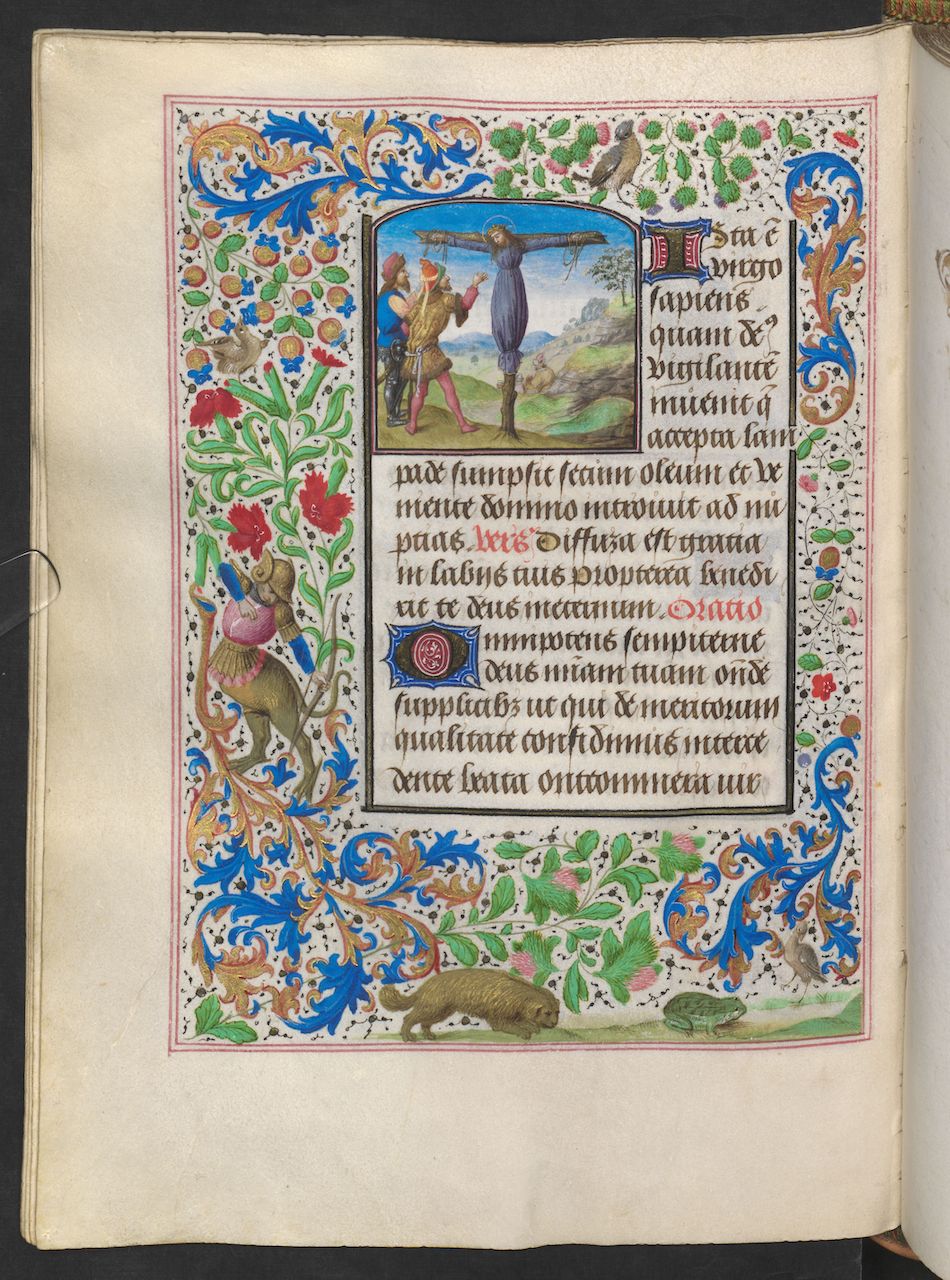 Ista ē
virgo
sapiens
quam dꝰ
vigilantē
inuenit q̄
accepta lam
pade sumpsit secum oleum et ve
niente domino introiuit ad nu
ptias. Vers᷒ Diffuza est gratia
in labijs tuis Propterea benedi
xit te deus ineternum. Oratio
Omnipotens sempiterne
deus mīam tuam onde
supplicibꝫ ut qui de meritorum
qualitate confidimus interce
dente beata ontcommera uir